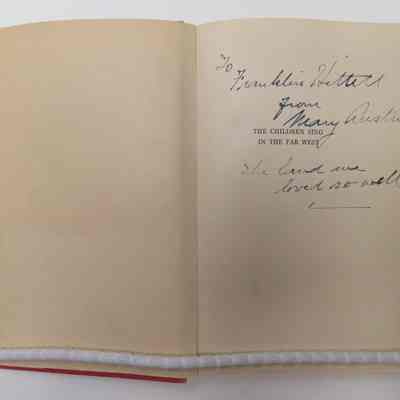 To
Franklin Hittell
from
Mary Austin
THE CHILDREN SING
IN THE FAR WEST
The land we
loved so well